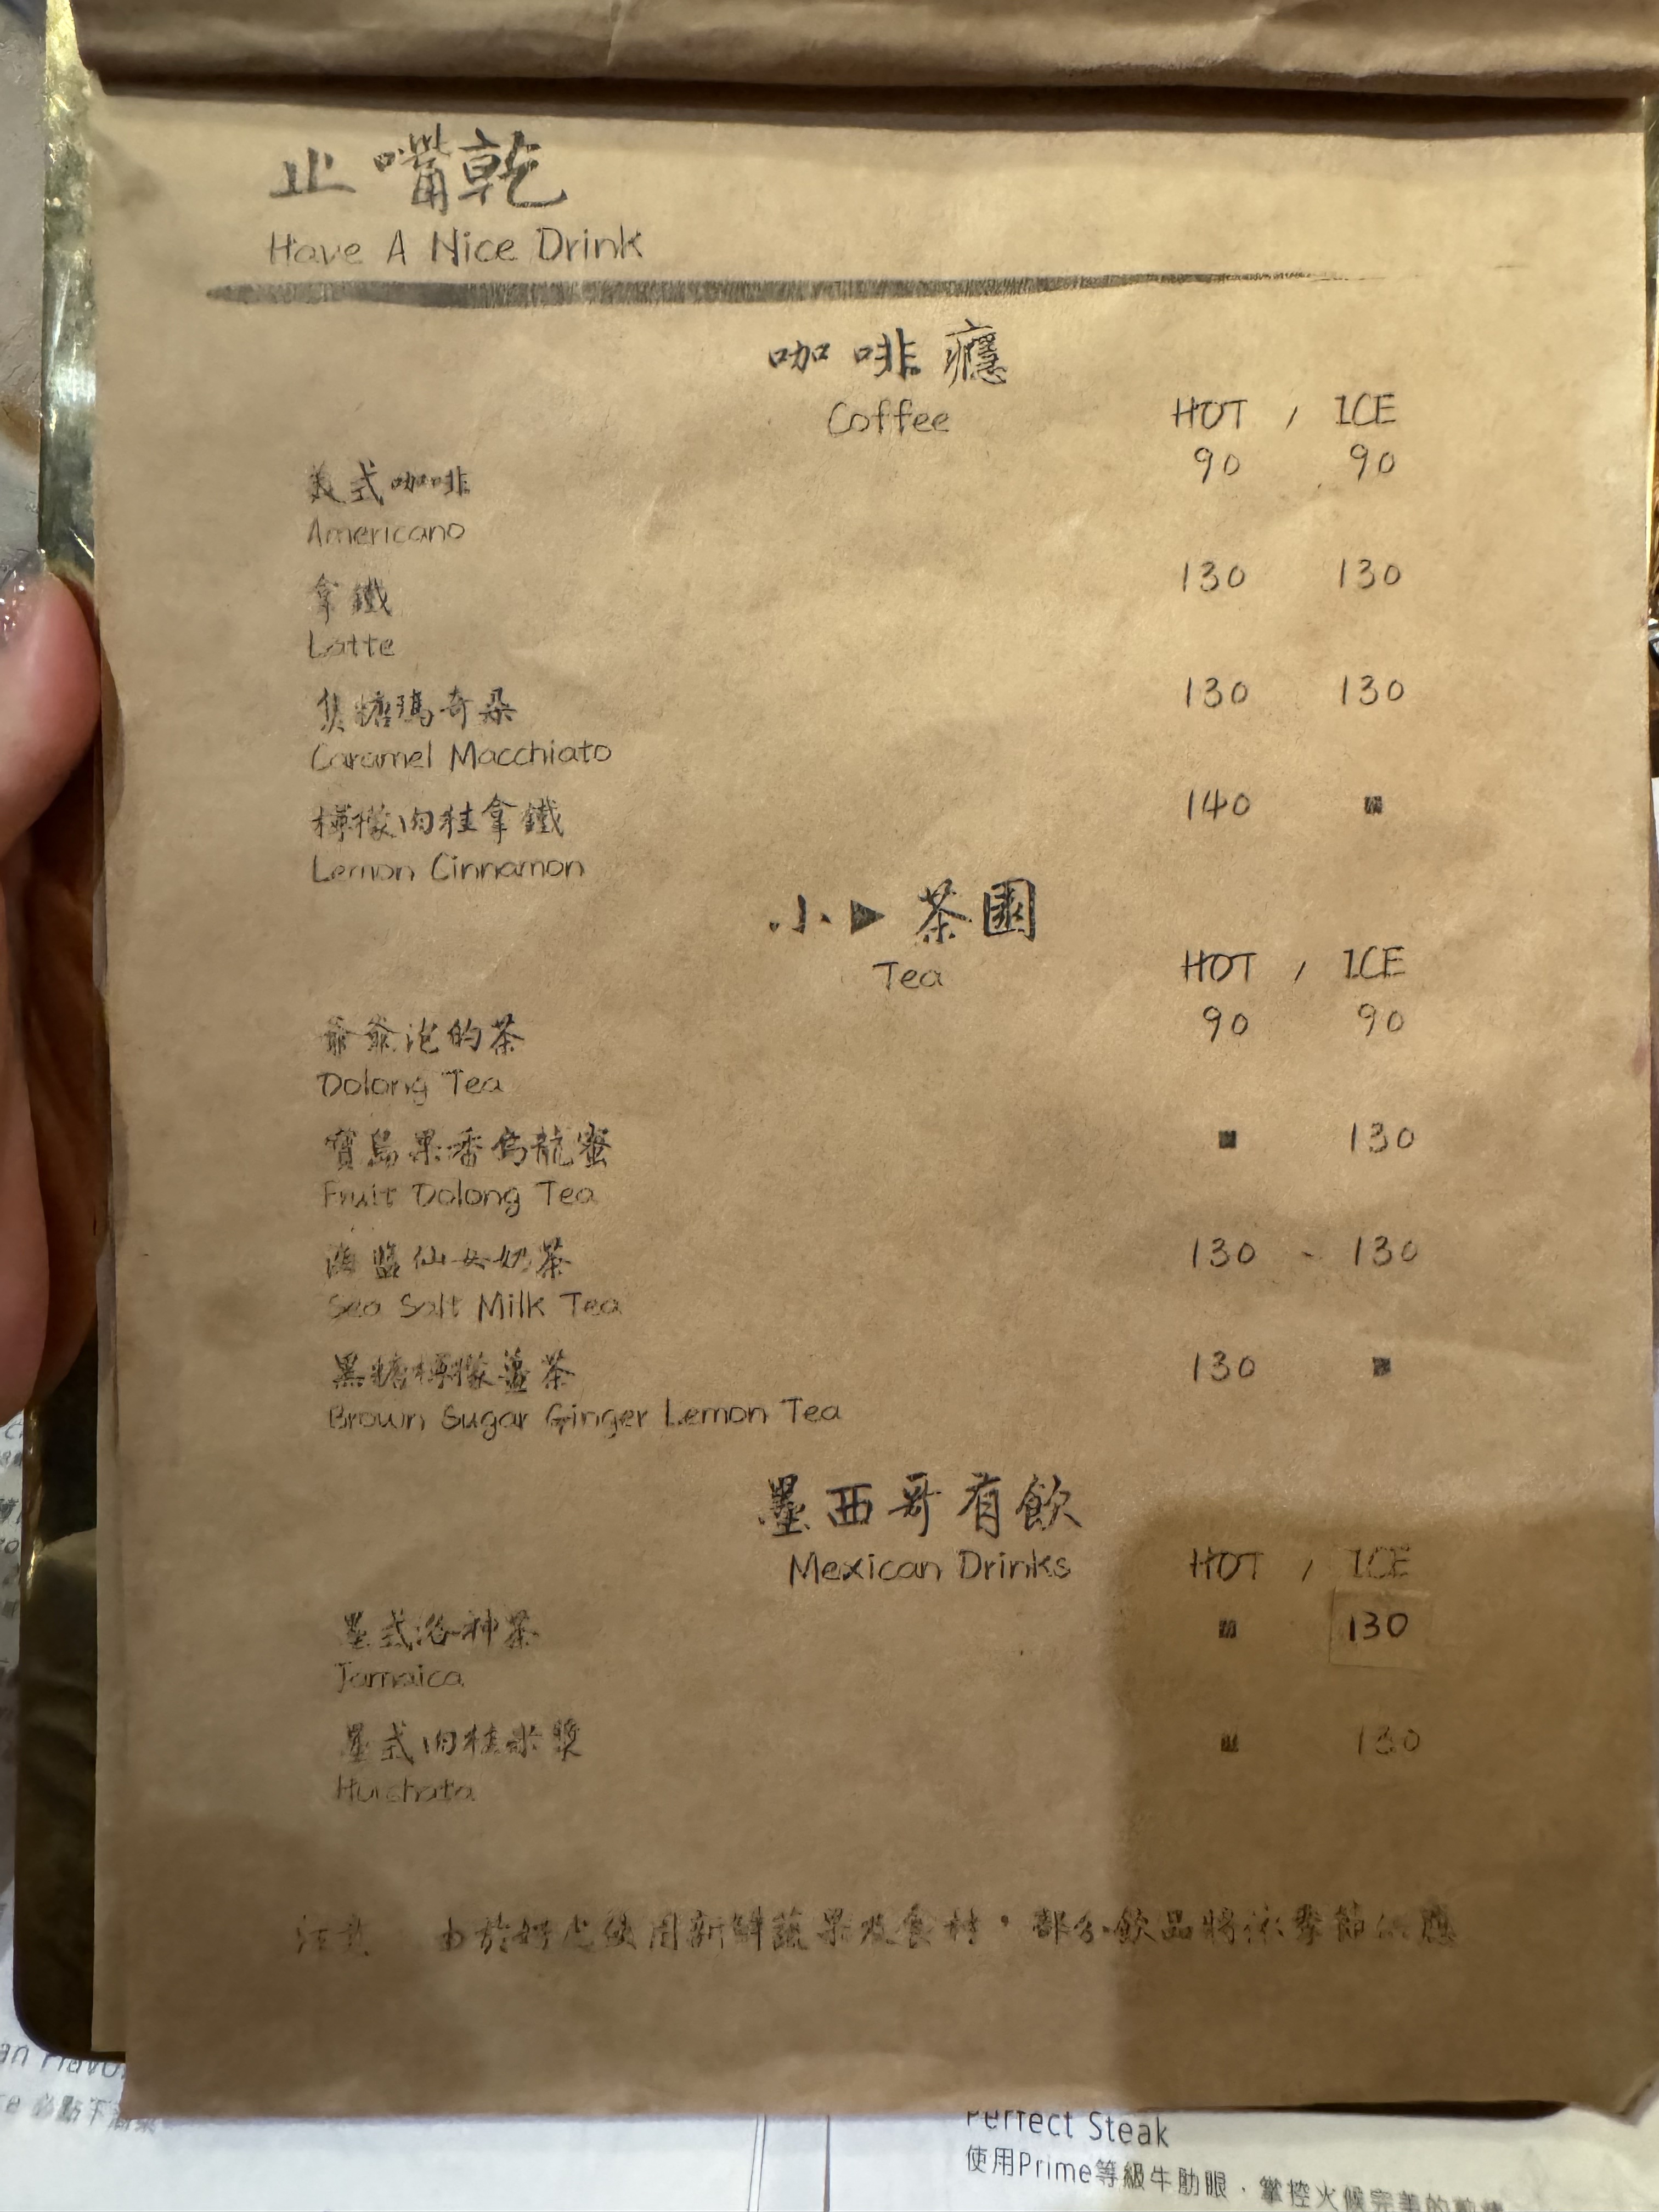 止嘴乾
Have A Nice Drink
咖啡癮
Coffee
HOT / ICE
美式咖啡 90 90
Americano
拿鐵 130 130
Latte
焦糖瑪奇朵 130 130
Caramel Macchiato
檸檬肉桂拿鐵 140
Lemon Cinnamon
小▶茶園
Tea
HOT / ICE
爺爺泡的茶 90 90
Oolong Tea
寶島果香烏龍蜜 130
Fruit Oolong Tea
海鹽仙女奶茶 130 130
Sea Salt Milk Tea
黑糖檸檬薑茶 130
Brown Sugar Ginger Lemon Tea
墨西哥有飲
Mexican Drinks
HOT / ICE
墨式洛神茶 130
Jamaica
墨式肉桂米漿 130
注意 由於 使用新鮮蔬果及食材,部分飲品將依季節供應
Perfect Steak
使用Prime等級牛肋眼